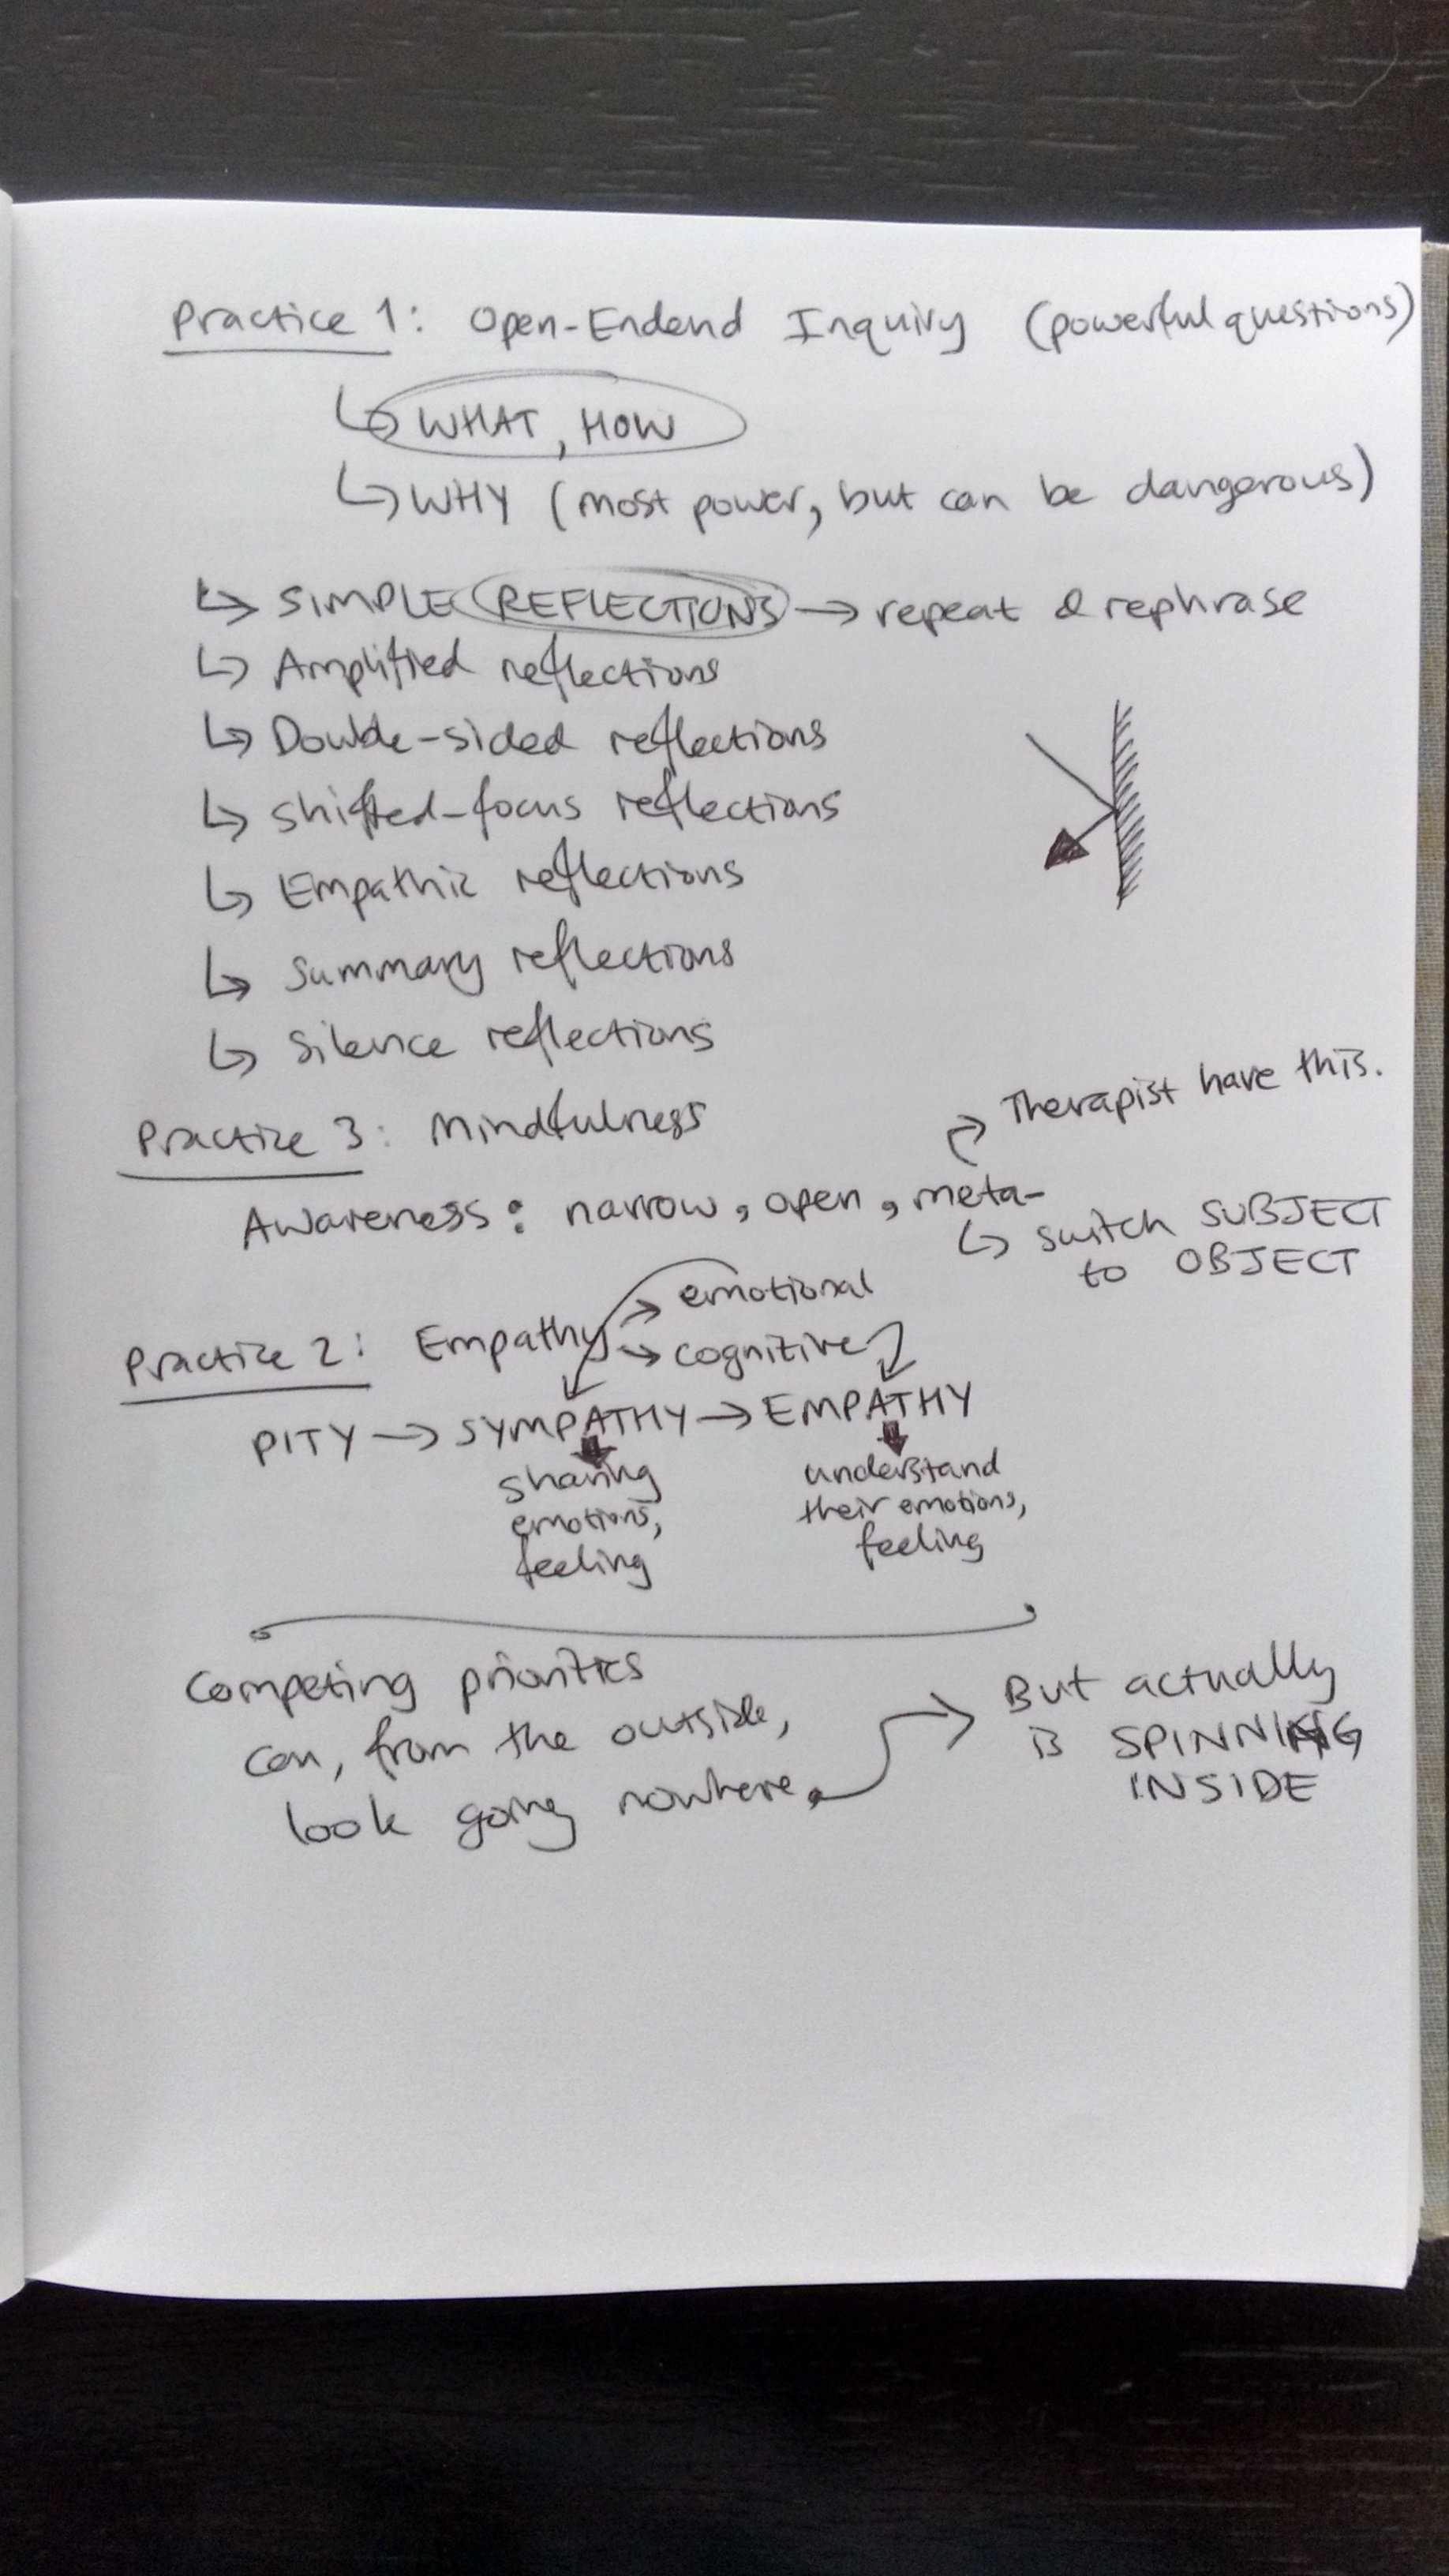 Practice 1: Open-Endend Inquiry (powerful questions)
WHAT, HOW
WHY (most power, but can be dangerous)
SIMPLE REFLECTIONS → repeat & rephrase
Amplified reflections
Double-sided reflections
shifted-focus reflections
Empathic reflections
Summary reflections
Silence reflections
Therapist have this.
Practice 3: Mindfulness
Awareness: narrow, open, meta-
switch SUBJECT
to OBJECT
emotional
Practice 2: Empathy
cognitive
PITY → SYMPATHY → EMPATHY
sharing
emotions,
feeling
understand
their emotions,
feeling
Competing priorities
can, from the outside,
look going nowhere
But actually
is SPINNING
INSIDE